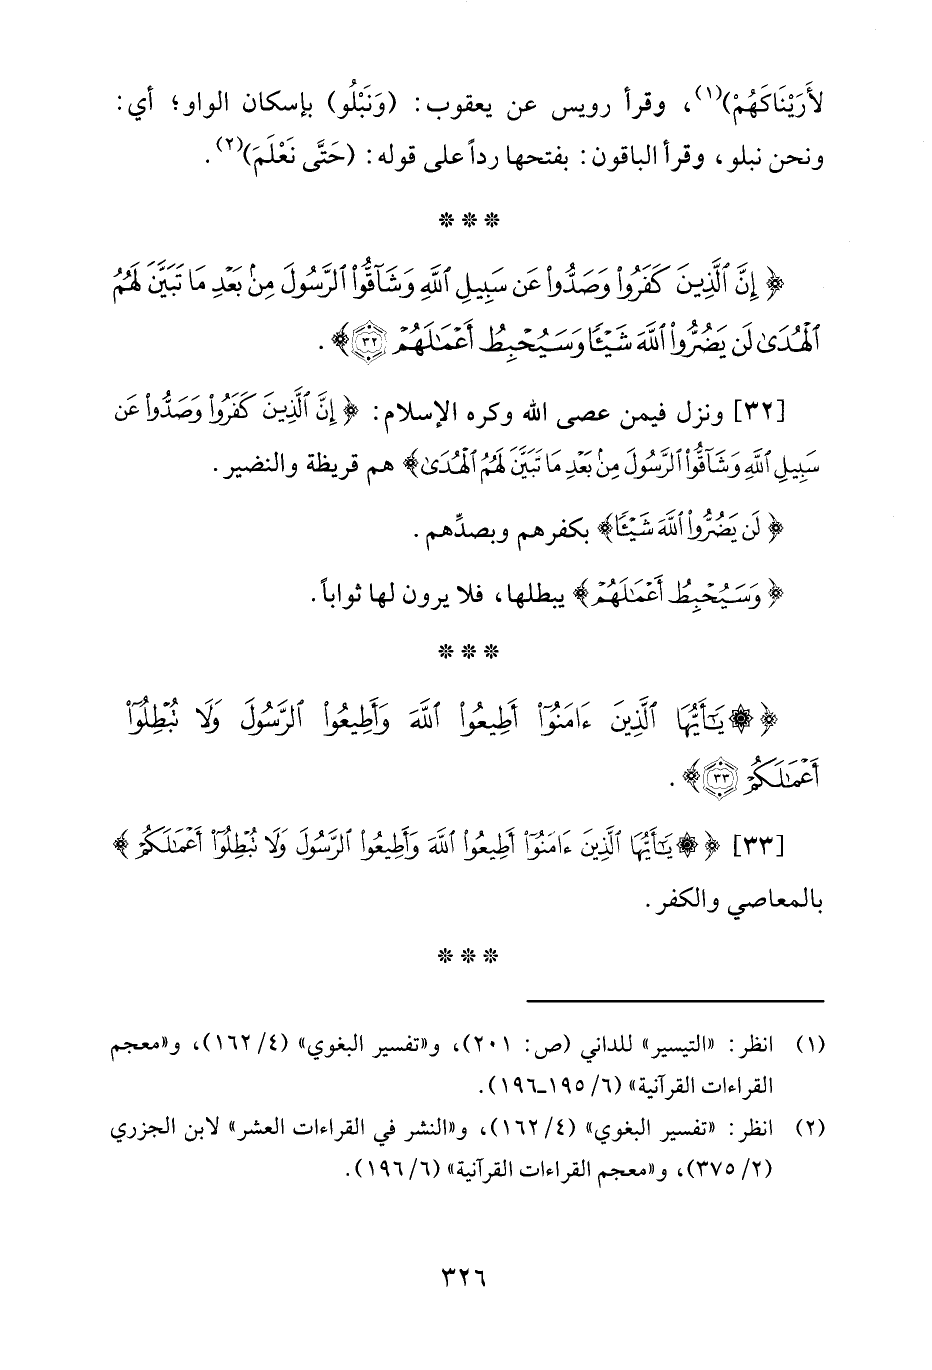 لأَرَيْنَاكَهُمْ)(١)، وقرأ رويس عن يعقوب: (وَنَبْلُو) بإسكان الواو؛ أي:
ونحن نبلو، وقرأ الباقون: بفتحها رداً على قوله: (حَتَّى نَعْلَمَ)(٢).
* * *
﴿إِنَّ ٱلَّذِينَ كَفَرُوا۟ وَصَدُّوا۟ عَن سَبِيلِ ٱللَّهِ وَشَآقُّوا۟ ٱلرَّسُولَ مِنۢ بَعْدِ مَا تَبَيَّنَ لَهُمُ
ٱلْهُدَىٰ لَن يَضُرُّوا۟ ٱللَّهَ شَيْـًٔا وَسَيُحْبِطُ أَعْمَـٰلَهُمْ ٣٢﴾.
[٣٢] ونزل فيمن عصى الله وكره الإسلام: ﴿إِنَّ ٱلَّذِينَ كَفَرُوا۟ وَصَدُّوا۟ عَن
سَبِيلِ ٱللَّهِ وَشَآقُّوا۟ ٱلرَّسُولَ مِنۢ بَعْدِ مَا تَبَيَّنَ لَهُمُ ٱلْهُدَىٰ﴾ هم قريظة والنضير.
﴿لَن يَضُرُّوا۟ ٱللَّهَ شَيْـًٔا﴾ بكفرهم وبصدِّهم.
﴿وَسَيُحْبِطُ أَعْمَـٰلَهُمْ﴾ يبطلها، فلا يرون لها ثواباً.
* * *
﴿۞ يَـٰٓأَيُّهَا ٱلَّذِينَ ءَامَنُوٓا۟ أَطِيعُوا۟ ٱللَّهَ وَأَطِيعُوا۟ ٱلرَّسُولَ وَلَا تُبْطِلُوٓا۟
أَعْمَـٰلَكُمْ ٣٣﴾.
[٣٣] ﴿۞ يَـٰٓأَيُّهَا ٱلَّذِينَ ءَامَنُوٓا۟ أَطِيعُوا۟ ٱللَّهَ وَأَطِيعُوا۟ ٱلرَّسُولَ وَلَا تُبْطِلُوٓا۟ أَعْمَـٰلَكُمْ﴾
بالمعاصي والكفر.
* * *
(١) انظر: «التيسير» للداني (ص: ٢٠١)، و«تفسير البغوي» (٤/ ١٦٢)، و«معجم
القراءات القرآنية» (٦/ ١٩٥ـ١٩٦).
(٢) انظر: «تفسير البغوي» (٤/ ١٦٢)، و«النشر في القراءات العشر» لابن الجزري
(٢/ ٣٧٥)، و«معجم القراءات القرآنية» (٦/ ١٩٦).
٣٢٦